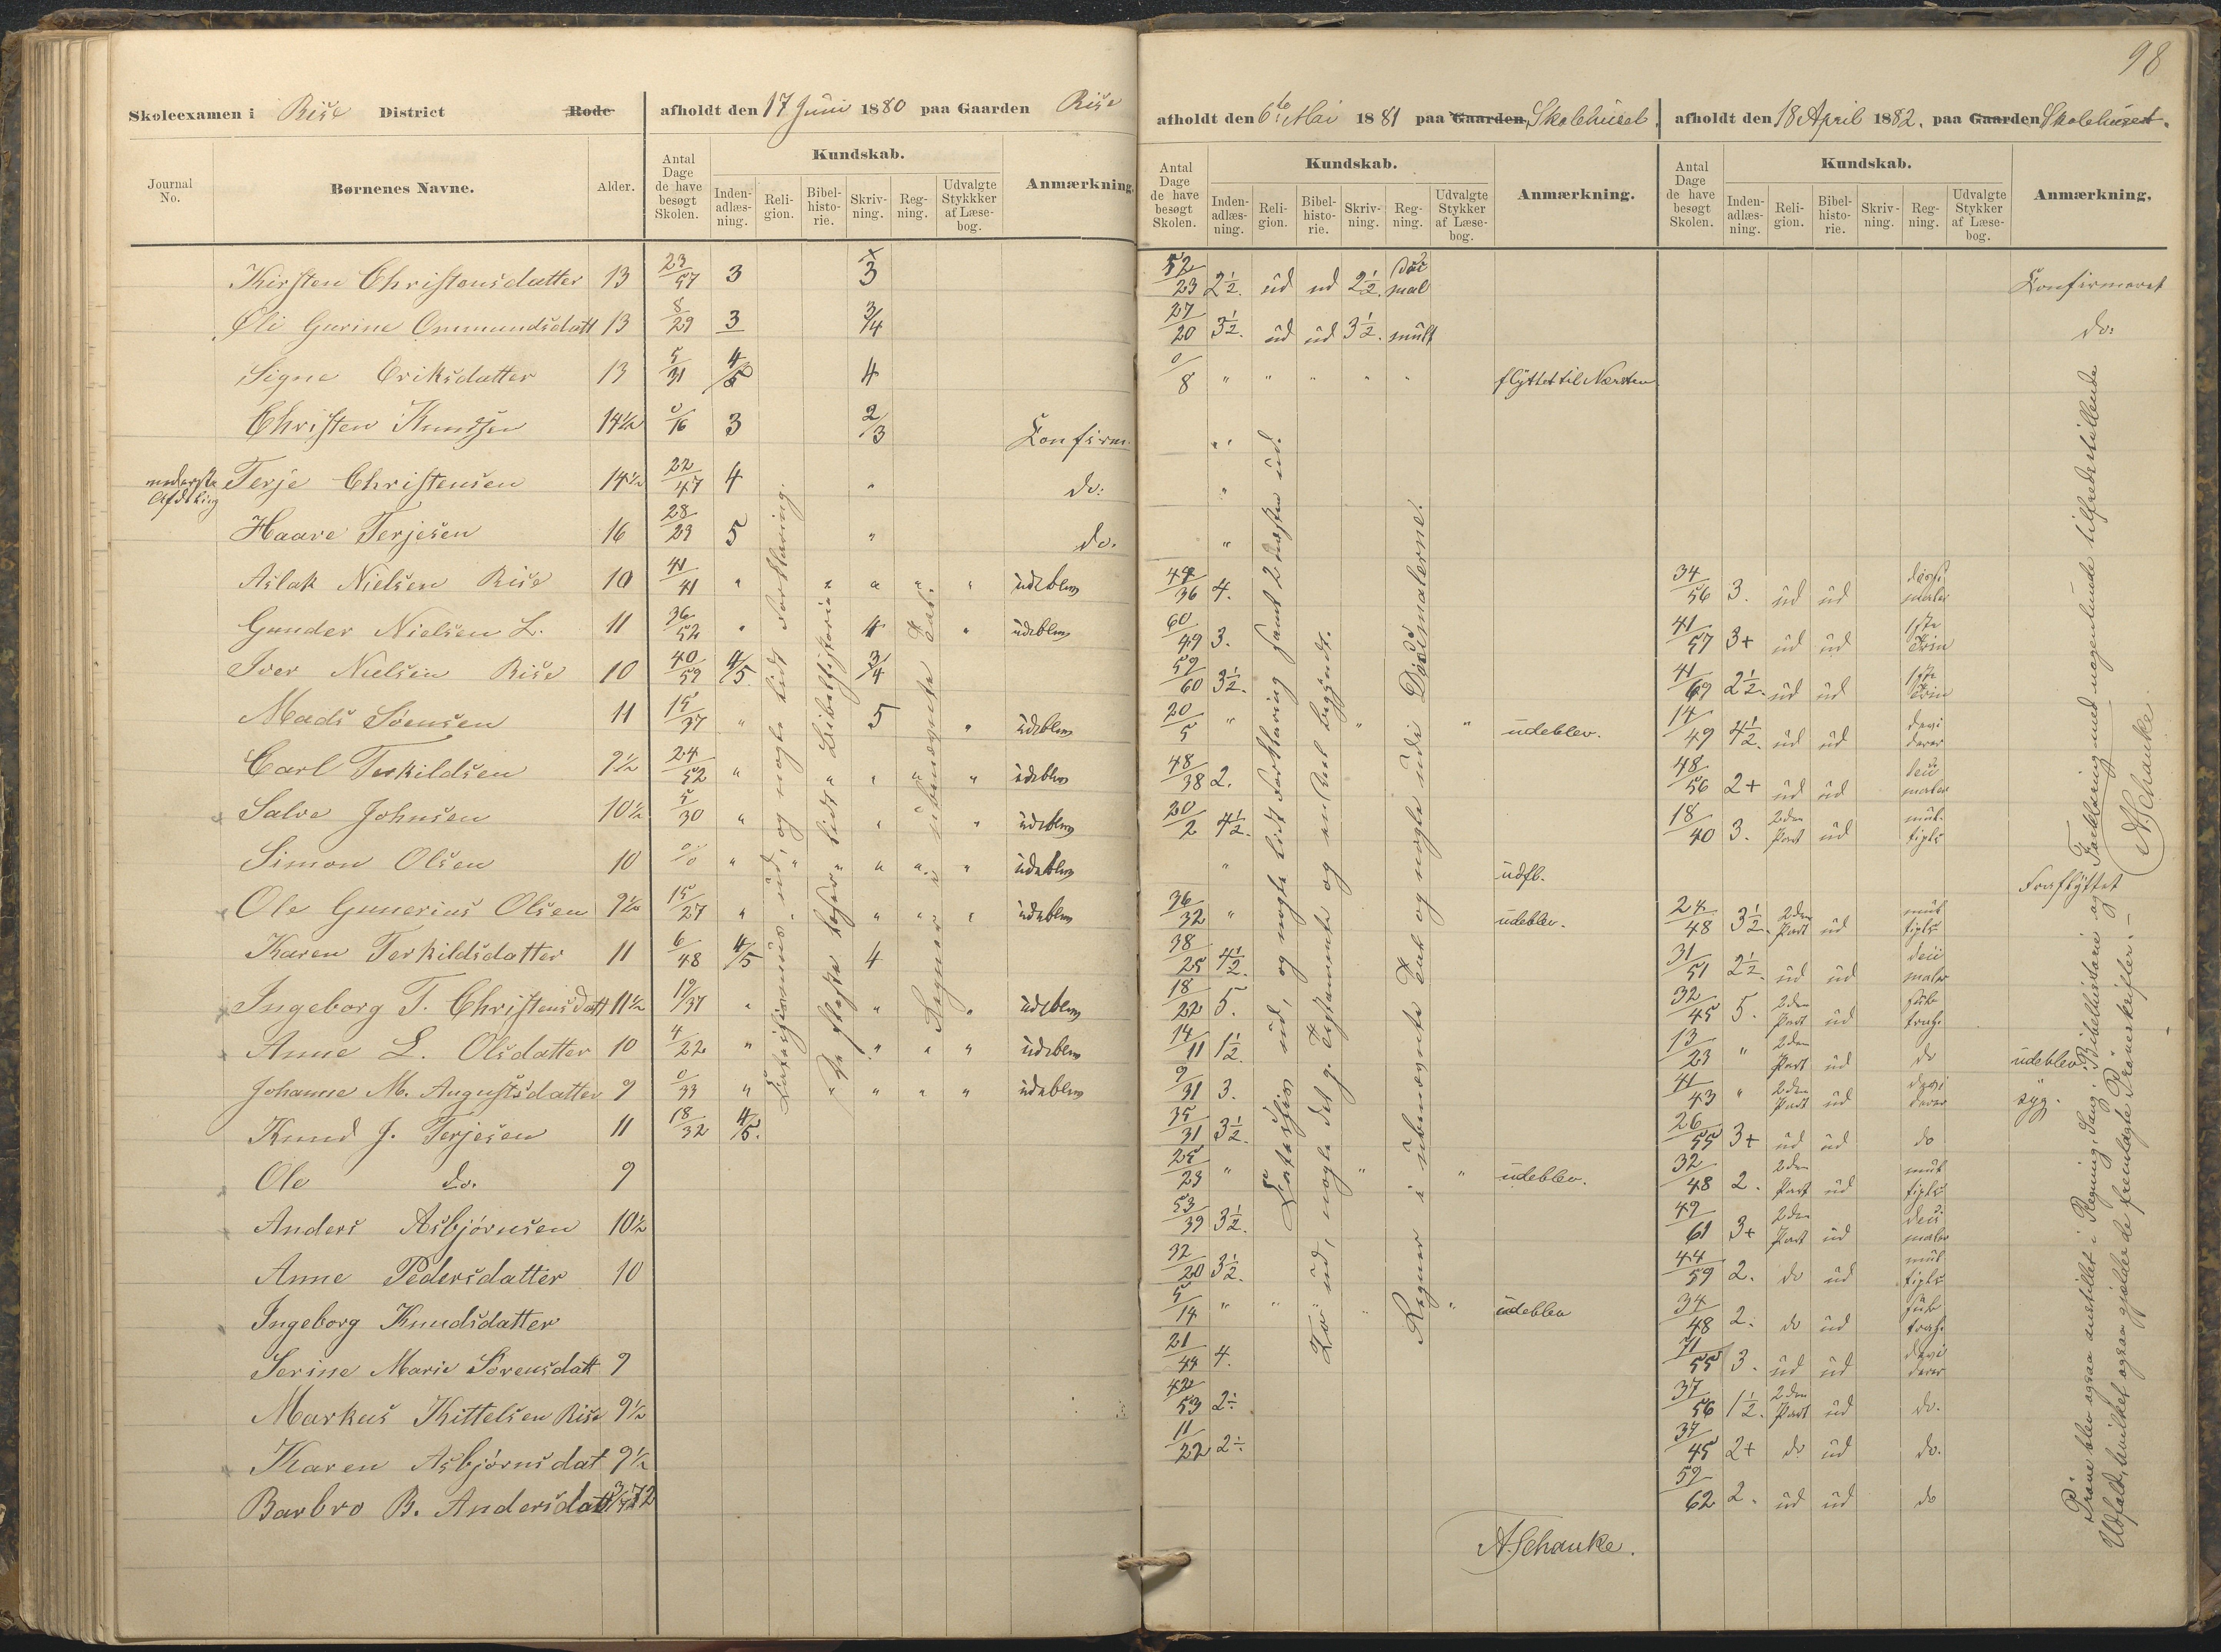 98
Skoleexamen i Rise District Rode afholdt den 17 Juni 1880 paa Gaarden Rise
afholdt den 6te Mai 1881 paa Gaarden Skolehuset.
afholdt den 18 April 1882. paa Gaarden Skolehuset.
Journal No. Børnenes Navne. Alder. Antal Dage de have besøgt Skolen. Kundskab. Inden- adlæs- ning. Reli- gion. Bibel- histo- rie. Skriv- ning. Reg- ning. Udvalgte Stykkker af Læse- bog. Anmærkning.
Antal Dage de have besøgt Skolen. Kundskab. Inden- adlæs- ning. Reli- gion. Bibel- histo- rie. Skriv- ning. Reg- ning. Udvalgte Stykker af Læse- bog. Anmærkning.
Antal Dage de have besøgt Skolen. Kundskab. Inden- adlæs- ning. Reli- gion. Bibel- histo- rie. Skriv- ning. Reg- ning. Udvalgte Stykker af Læse- bog. Anmærkning.
Kirsten Christensdatter 13 23/57 3 3 52/23 2½. ud ud 2½. mal Confirmeret
Oli Gurine Ommundsdatt 13 8/29 3 3/4 27/20 3½. ud ud 3½. mult do:
Signe Eriksdatter 13 5/31 4/5 4 0/8 " " " " " flyttet til Næsten
Christen Knudsen 14½ 0/16 3 2/3 Confirm. "
nederste Afdeling Terje Christensen 14½ 22/47 4 " do: "
Haave Terjesen 16 28/23 5 " do. "
Aslak Nielsen Rise 10 41/41 " " " " " udeblev 44/36 4. 34/56 3. ud ud maler
Gunder Nielsen L. 11 36/52 " 4 " udeblev 60/49 3. 41/57 3+ ud ud 1ste Trin
Iver Nielsen Rise 10 40/59 4/5 3/4 59/60 3½. 41/69 2½. ud ud 1ste Trin
Mads Søensen 11 15/37 " 5 " udeblev 20/5 " " " udeblev. 14/49 4½. ud ud devi derer
Carl Terkildsen 9½ 24/52 " " " " " udeblev 48/38 2. 48/56 2+ ud ud maler
Salve Johnsen 10½ 5/30 " " " udeblev 20/2 4½. 18/40 3. 2den Part ud mul- tipls
Simon Olsen 10 0/0 " " " " " udeblev " udfl. Fraflyttet
Ole Gunerius Olsen 9½ 15/27 " " " " udeblev 36/32 " udeblev. 24/48 3½. 2den Part ud mul tipls
Karen Terkildsdatter 11 6/48 4/5 4 38/25 4½. 31/51 2½. ud ud maler
Ingeborg T. Christensdatt 11½ 19/37 " " " udeblev 18/22 5. 32/45 5. 2den Part ud sub trah.
Anne L. Olsdatter 10 4/22 " " " " udeblev 14/11 1½. 13/23 " 2den Part ud do udeblev
Johanne M. Augustsdatter 9 0/33 " " " " " udeblev 9/31 3. 41/43 " 2den Part ud devi derer syg.
Knud J. Terjesen 11 18/32 4/5. 35/31 3½. 26/55 3+ ud ud do
Ole do. 9 25/23 " " " udeblev. 32/48 2. 2den Part ud mul tipls
Anders Asbjørnsen 10½ 53/39 3½. 49/61 3+ 2den Part ud maler
Anne Pedersdatter 10 32/20 3½. 44/59 2. do ud mul tipls
Ingeborg Knudsdatter 5/14 " " " " udeblev 34/48 2. do ud sub trah.
Serine Marie Sørensdatt 9 21/44 4. 41/55 3. ud ud devi derer
Markus Kittelsen Rise 9½ 42/53 2÷ 37/56 1½. 2den Part ud do.
Karen Asbjørnsdat 9½ 11/22 2÷ 37/45 2+ do ud do.
Barbro B. Andersdatt 59/62 2. ud ud do
A. Schanke.
Catechismus ud, og nogle lidt Forklaring.
De fleste læser lidt Bibelhistorie
Regner i ubenævnte Tal.
Catechism ud, og nogle lidt Forklaring samt 2 næsten ud.
To ud, nogle det g. Testamente og en Del begyndt.
Regner i ubenævnte Tal og nogle inde i Decimalerne.
Prøve blev ogsaa anstillet i Regning, Sang, Bibelhistorie og Forklaring med nogenlunde tilfredsstillende
Udfald, hvilket ogsaa gjælder de fremlagte Prøveskrifter. –
A. Schanke